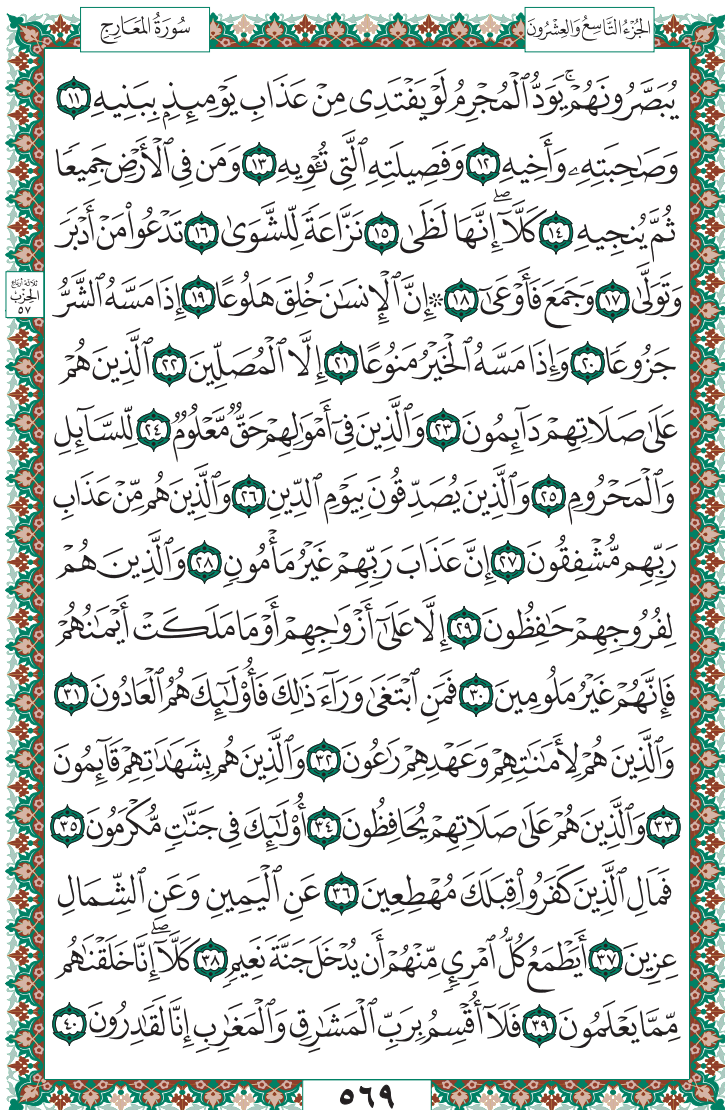 الجُزْءُ التَّاسِعُ وَالعِشْرُونَ سُورَةُ المَعَارِجِ
يُبَصَّرُونَهُمْۚ يَوَدُّ ٱلْمُجْرِمُ لَوْ يَفْتَدِى مِنْ عَذَابِ يَوْمِئِذٍۭ بِبَنِيهِ ١١
وَصَٰحِبَتِهِۦ وَأَخِيهِ ١٢ وَفَصِيلَتِهِ ٱلَّتِى تُـْٔوِيهِ ١٣ وَمَن فِى ٱلْأَرْضِ جَمِيعًا
ثُمَّ يُنجِيهِ ١٤ كَلَّآۖ إِنَّهَا لَظَىٰ ١٥ نَزَّاعَةً لِّلشَّوَىٰ ١٦ تَدْعُوا۟ مَنْ أَدْبَرَ
وَتَوَلَّىٰ ١٧ وَجَمَعَ فَأَوْعَىٰٓ ١٨ ۞ إِنَّ ٱلْإِنسَٰنَ خُلِقَ هَلُوعًا ١٩ إِذَا مَسَّهُ ٱلشَّرُّ
ثلاثة أرباع
الحِزْبُ
٥٧
جَزُوعًا ٢٠ وَإِذَا مَسَّهُ ٱلْخَيْرُ مَنُوعًا ٢١ إِلَّا ٱلْمُصَلِّينَ ٢٢ ٱلَّذِينَ هُمْ
عَلَىٰ صَلَاتِهِمْ دَآئِمُونَ ٢٣ وَٱلَّذِينَ فِىٓ أَمْوَٰلِهِمْ حَقٌّ مَّعْلُومٌ ٢٤ لِّلسَّآئِلِ
وَٱلْمَحْرُومِ ٢٥ وَٱلَّذِينَ يُصَدِّقُونَ بِيَوْمِ ٱلدِّينِ ٢٦ وَٱلَّذِينَ هُم مِّنْ عَذَابِ
رَبِّهِم مُّشْفِقُونَ ٢٧ إِنَّ عَذَابَ رَبِّهِمْ غَيْرُ مَأْمُونٍ ٢٨ وَٱلَّذِينَ هُمْ
لِفُرُوجِهِمْ حَٰفِظُونَ ٢٩ إِلَّا عَلَىٰٓ أَزْوَٰجِهِمْ أَوْ مَا مَلَكَتْ أَيْمَٰنُهُمْ
فَإِنَّهُمْ غَيْرُ مَلُومِينَ ٣٠ فَمَنِ ٱبْتَغَىٰ وَرَآءَ ذَٰلِكَ فَأُو۟لَٰٓئِكَ هُمُ ٱلْعَادُونَ ٣١
وَٱلَّذِينَ هُمْ لِأَمَٰنَٰتِهِمْ وَعَهْدِهِمْ رَٰعُونَ ٣٢ وَٱلَّذِينَ هُم بِشَهَٰدَٰتِهِمْ قَآئِمُونَ
٣٣ وَٱلَّذِينَ هُمْ عَلَىٰ صَلَاتِهِمْ يُحَافِظُونَ ٣٤ أُو۟لَٰٓئِكَ فِى جَنَّٰتٍ مُّكْرَمُونَ ٣٥
فَمَالِ ٱلَّذِينَ كَفَرُوا۟ قِبَلَكَ مُهْطِعِينَ ٣٦ عَنِ ٱلْيَمِينِ وَعَنِ ٱلشِّمَالِ
عِزِينَ ٣٧ أَيَطْمَعُ كُلُّ ٱمْرِئٍ مِّنْهُمْ أَن يُدْخَلَ جَنَّةَ نَعِيمٍ ٣٨ كَلَّآۖ إِنَّا خَلَقْنَٰهُم
مِّمَّا يَعْلَمُونَ ٣٩ فَلَآ أُقْسِمُ بِرَبِّ ٱلْمَشَٰرِقِ وَٱلْمَغَٰرِبِ إِنَّا لَقَٰدِرُونَ ٤٠
٥٦٩